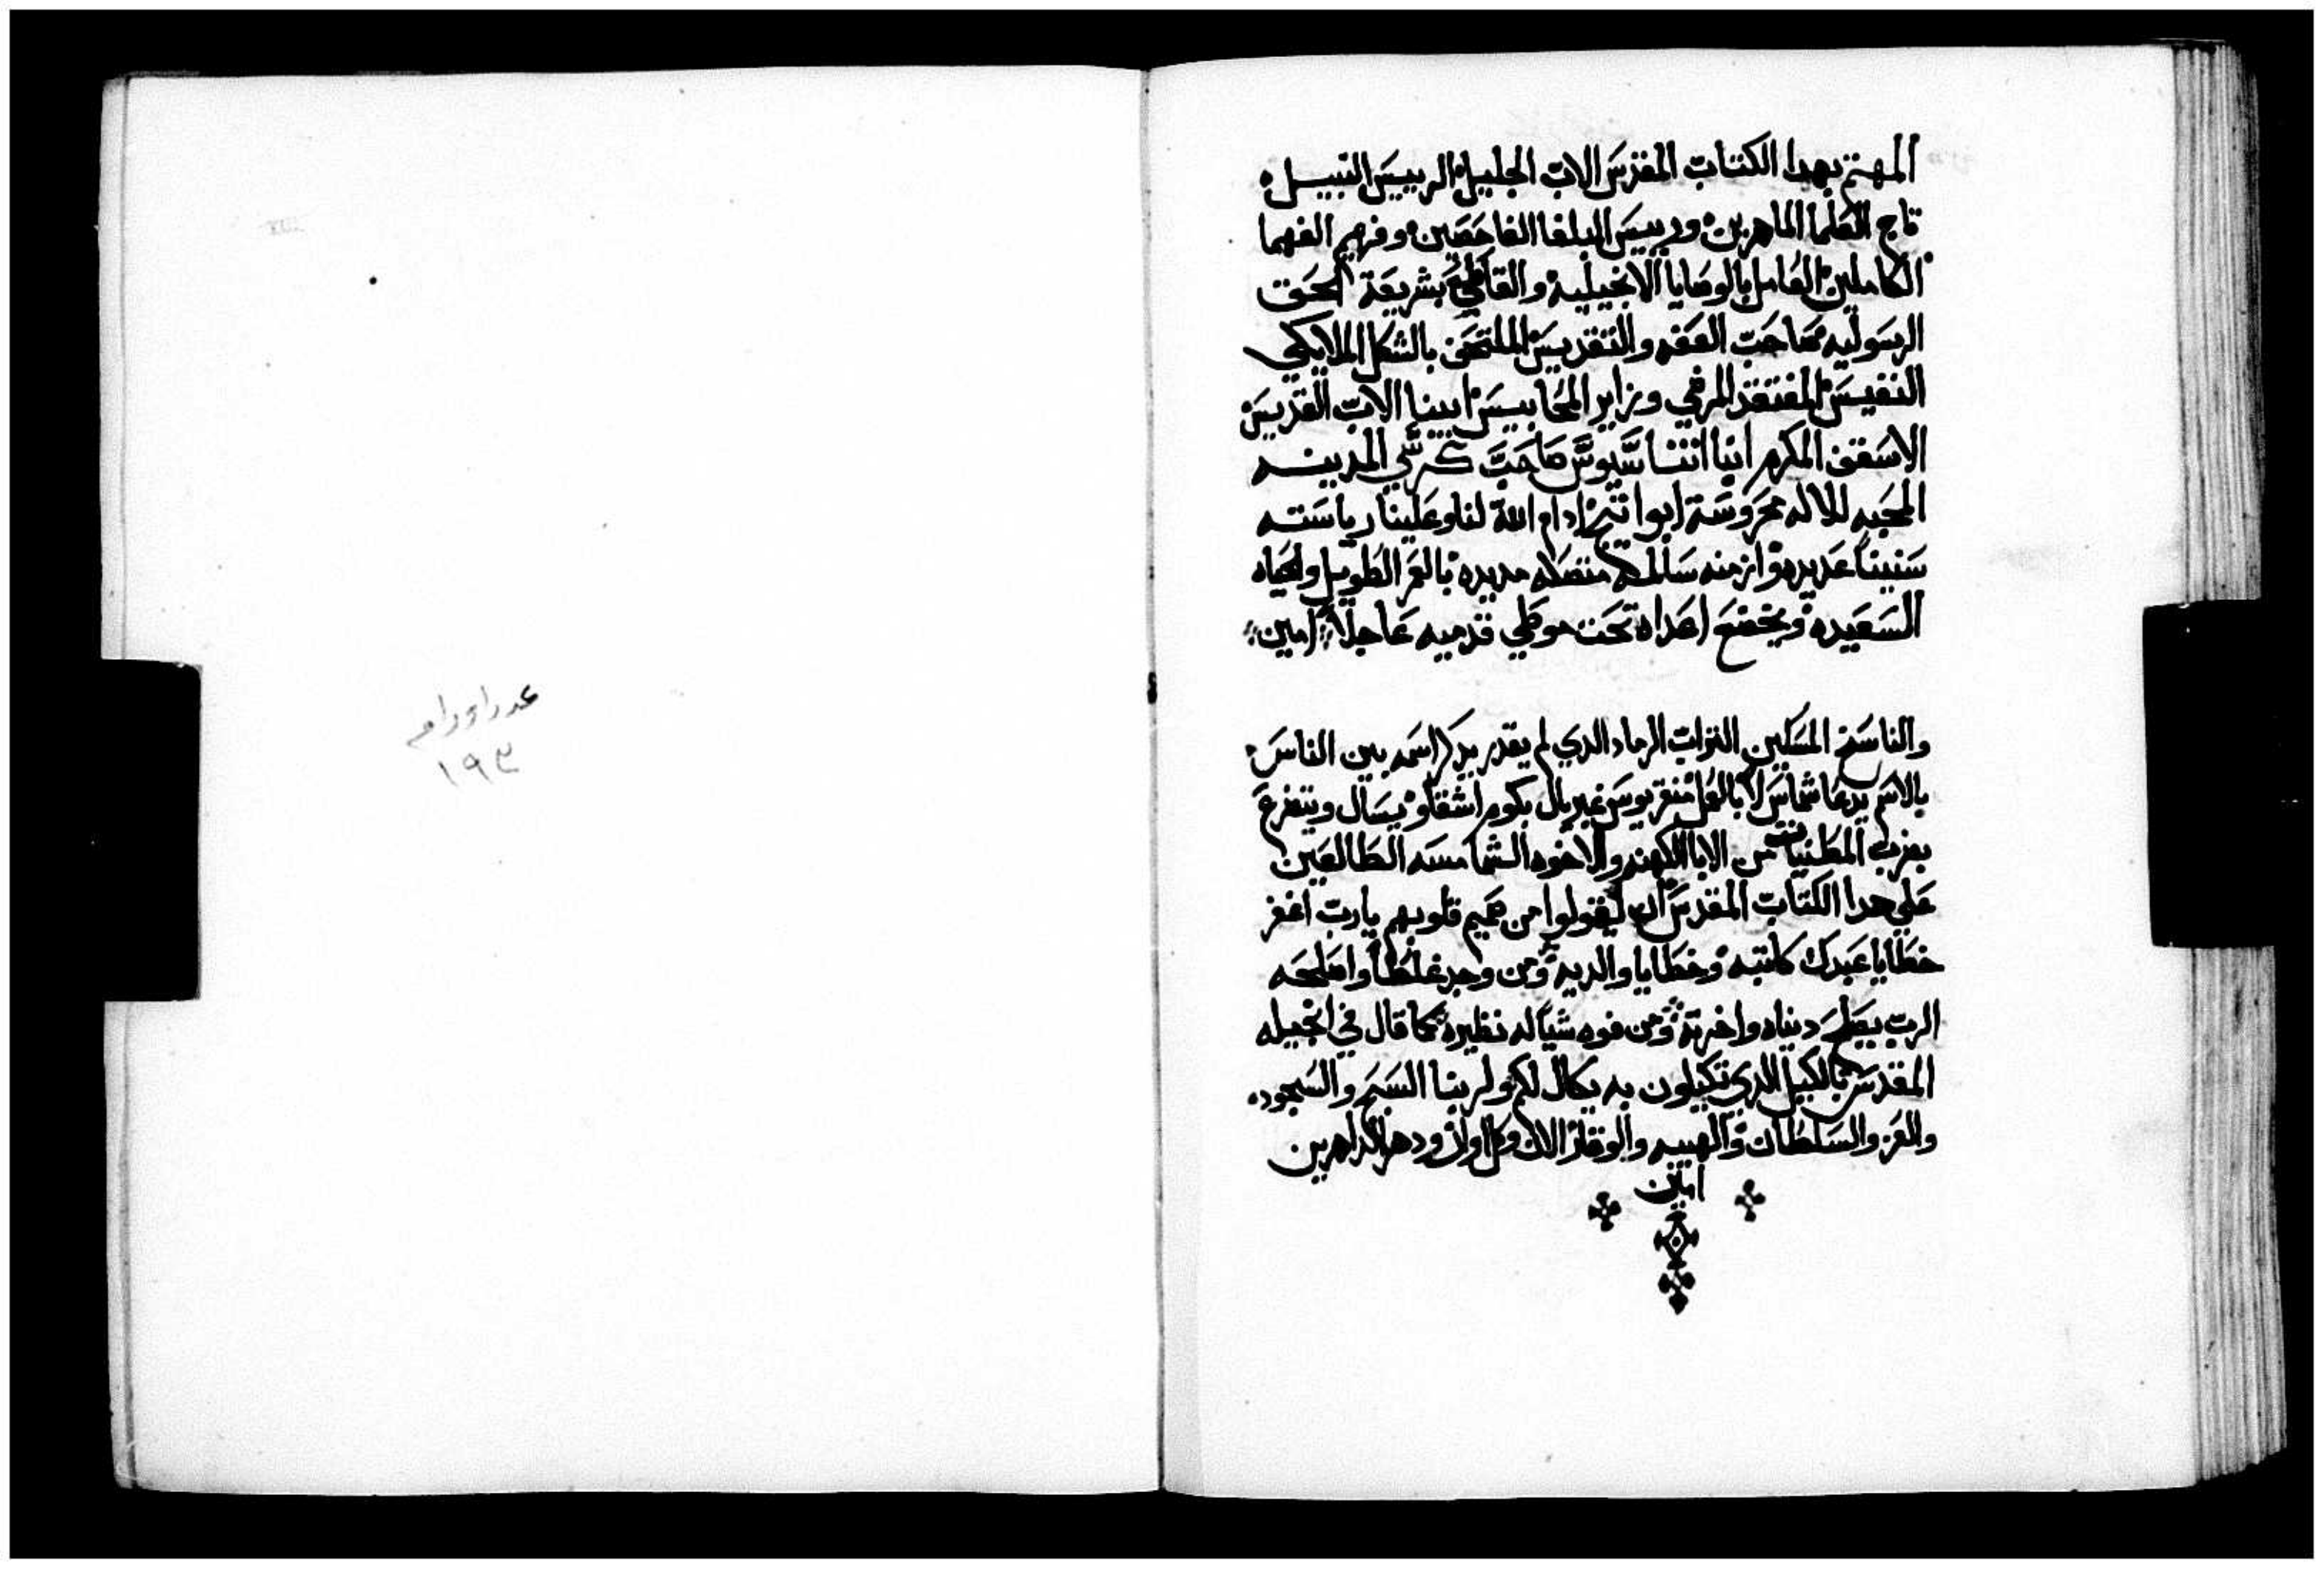 المهتم بهدا الكتاب المقدس الاب الجليل الرييس النبيل
تاج العلما الماهرين ورييس البلغا الفاحصين وفهيم الفهما
الكاملين العامل بالوصايا الانجيليه والقاطع بشريعة الحق
الرسوليه صاحب العفه والتقديس الملتحف بالشكل الملايكي
النفيس المفتقد المرضي وزاير المحابيس ابينا الاب القديس
الاسقف المكرم انبا اتناسيوس صاحب كرسي المدينه
المحبه للاله محروسة ابوا تيج ادام الله لنا وعلينا رياسته
سنينا عديده وازمنه سالمه متصله مديده بالعمر الطويل والحياه
السعيده ويخضع اعداه تحت موطي قدميه عاجلا امين
والناسخ المسكين التراب الرماد الدي لم يقدر يدكر اسمه بين الناس
بالاسم يدعا شماس لا بالعمل منقريوس غبريال بكوم اشقاو يسال ويتضرع
بضرب المطنيات من الابا الكهنه والاخوه الشمامسه الطالعين
علي هدا الكتاب المقدس ان ليقولوا من صميم قلوبهم يارب اغفر
خطايا عبدك كاتبه وخطايا والديه ومن وجد غلطا واصلحه
الرب يصلح دنياه واخرته ومن فوه شيا له نظيره كما قال في انجيله
المقدس بالكيل الدي تكيلون به يكال لكم ولربنا السبح والسجود
والعز والسلطان والهيبه والوقار الان وكل اوان ودهر الداهرين
امين
١٩٣